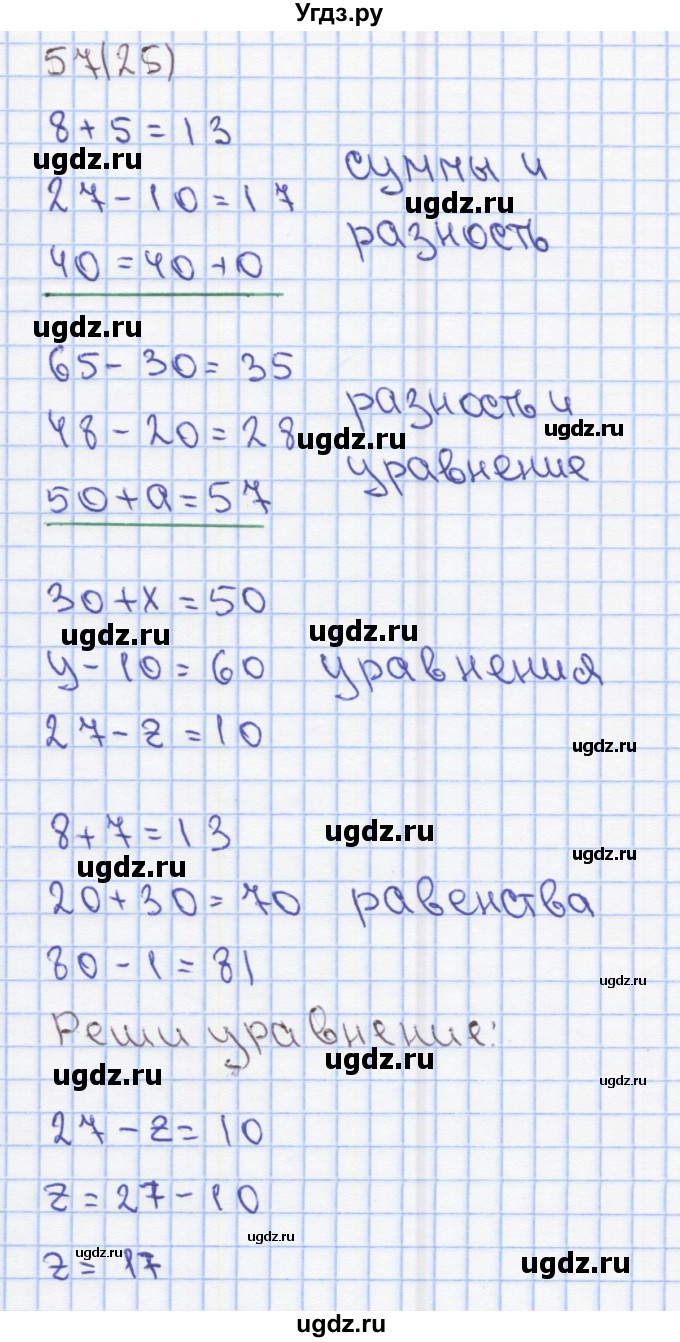 Угдз.ру
57(25)
8 + 5 = 13
ugdz.ru
суммы и
27 - 10 = 17
ugdz.ru
разность
40 = 40 + 0
ugdz.ru
65 - 30 = 35
разность и
48 - 20 = 28
ugdz.ru
ugdz.ru
уравнение
50 + a = 57
30 + x = 50
ugdz.ru
ugdz.ru
y - 10 = 60 уравнения
27 - z = 10
ugdz.ru
8 + 7 = 13
ugdz.ru
ugdz.ru
ugdz.ru
20 + 30 = 70 равенства
80 - 1 = 81
ugdz.ru
Реши уравнение:
ugdz.ru
ugdz.ru
ugdz.ru
27 - z = 10
z = 27 - 10
ugdz.ru
ugdz.ru
z = 17
ugdz.ru
ugdz.ru